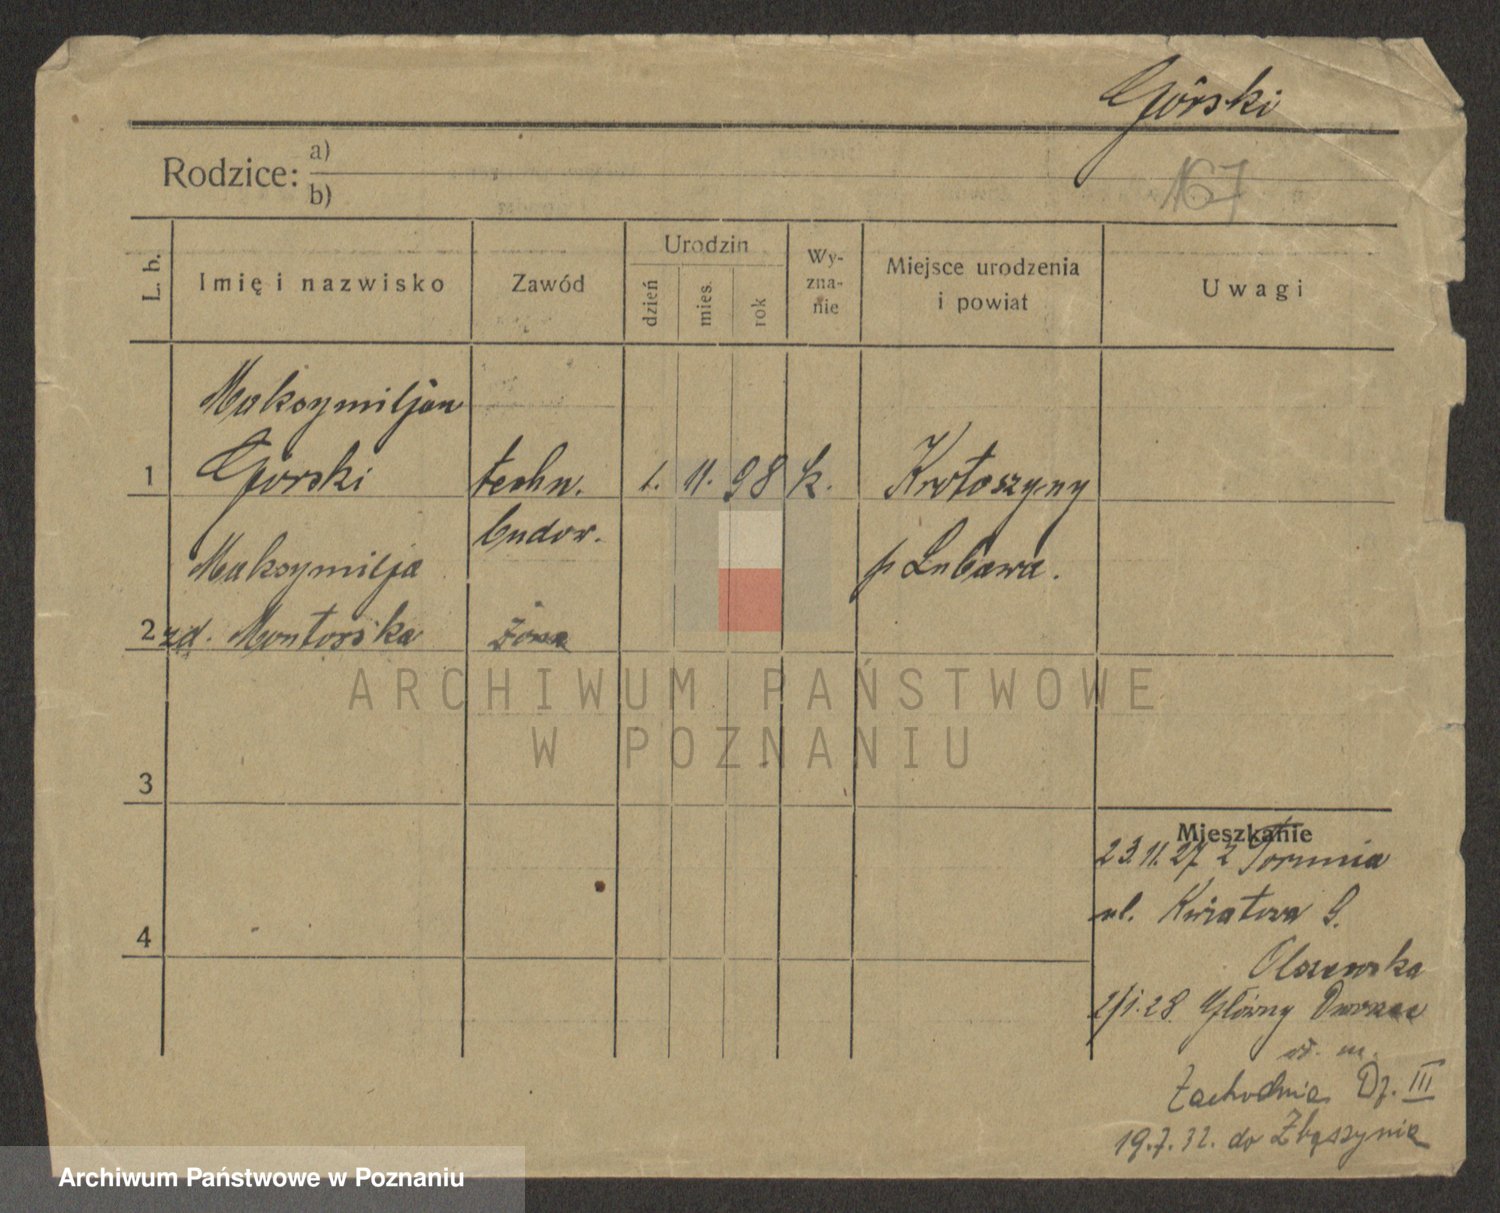 Górski
167
Rodzice: a)
b)
L. b.
Imię i nazwisko
Zawód
Urodzin
dzień
mies.
rok
Wy-
zna-
nie
Miejsce urodzenia
i powiat
Uwagi
Maksymiljan
1 Górski techn. 1. 11. 98 k. Krotoszyny
budow.
Maksymilja p Lubawa.
2 zd. Montorska żona
3
4
Mieszkanie
23.11.27 z Torunia
ul. Kwiatowa 9.
Olszewska
2/1.28 Główny Dworzec
wł. m.
Zachodnia Dz. III
19.7.32. do Zbąszynia
ARCHIWUM PAŃSTWOWE
W POZNANIU
Archiwum Państwowe w Poznaniu